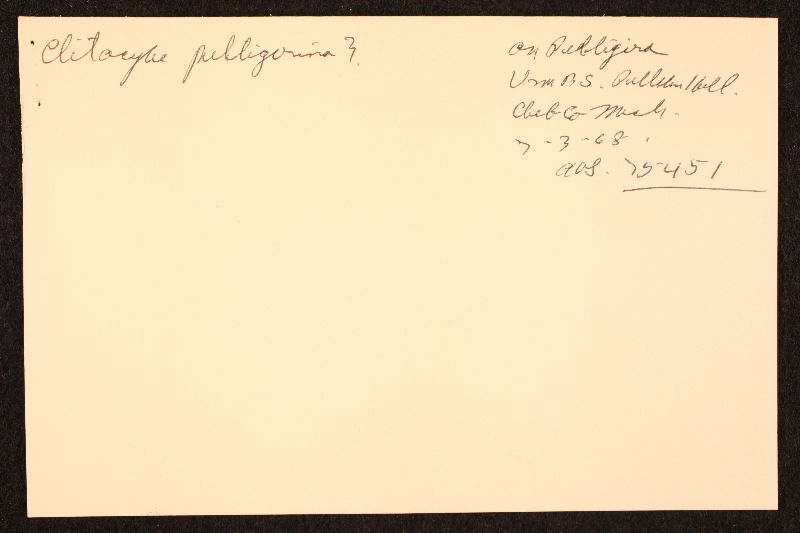 Clitocybe peltigerina?
on Peltigera
UMBS. Pellston Hill.
Cheb Co Mich.
7-3-68.
AHS. 75451